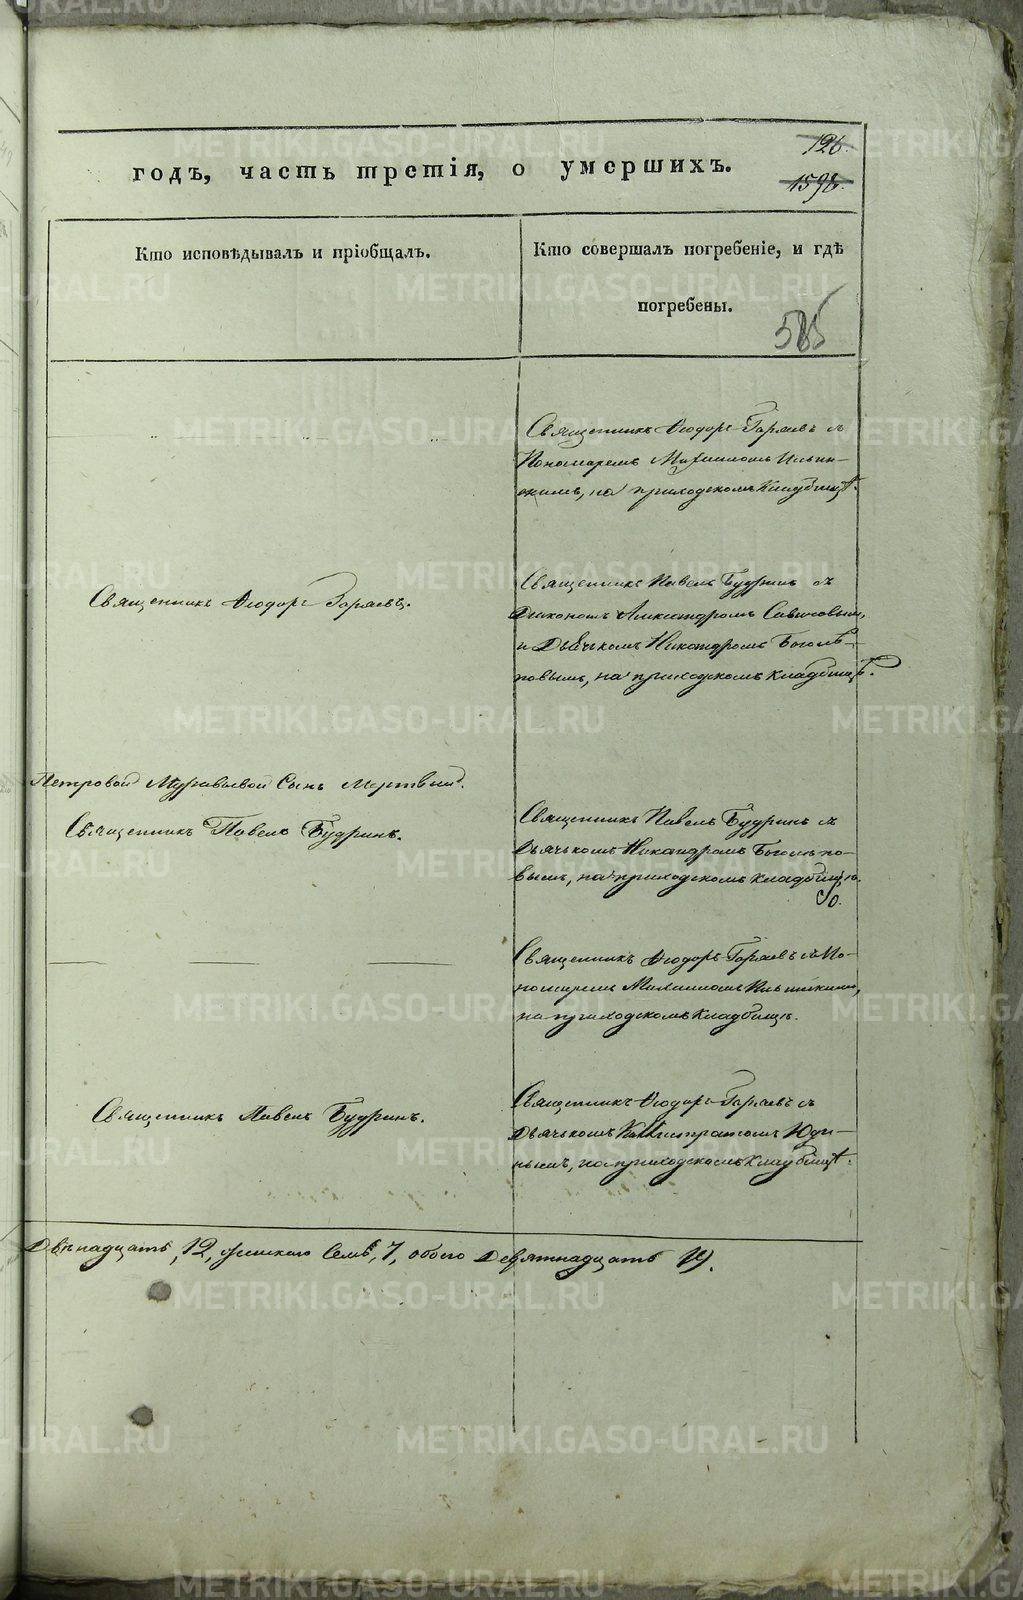 126.
годъ, часть третія, о умершихъ.
1598.
Кто исповѣдывалъ и пріобщалъ.
Кто совершалъ погребеніе, и гдѣ
погребены.
585
Священникъ Ѳеодоръ Горяевъ съ
Пономаремъ Михаиломъ Ильин-
скимъ, на приходскомъ кладбищѣ.
Священникъ Ѳеодоръ Горяевъ.
Священникъ Павелъ Будринъ съ
Діакономъ Александромъ
и Дьячкомъ Никандромъ Боголѣ-
повымъ, на приходскомъ кладбищѣ.
Петровой Муравьевой Сынъ Мертвый.
Священникъ Павелъ Будринъ.
Священникъ Павелъ Будринъ съ
Дьячкомъ Никандромъ Боголѣпо-
вымъ, на приходскомъ кладбищѣ.
Священникъ Ѳеодоръ Горяевъ съ По-
номаремъ Михаиломъ Ильинскимъ,
на приходскомъ кладбищѣ.
Священникъ Павелъ Будринъ.
Священникъ Ѳеодоръ Горяевъ съ
Дьячкомъ Каллистратомъ Юди-
нымъ, на приходскомъ кладбищѣ.
Двѣнадцать, 12, женскаго Семь, 7, обоего Девятнадцать 19.
METRIKI.GASO-URAL.RU